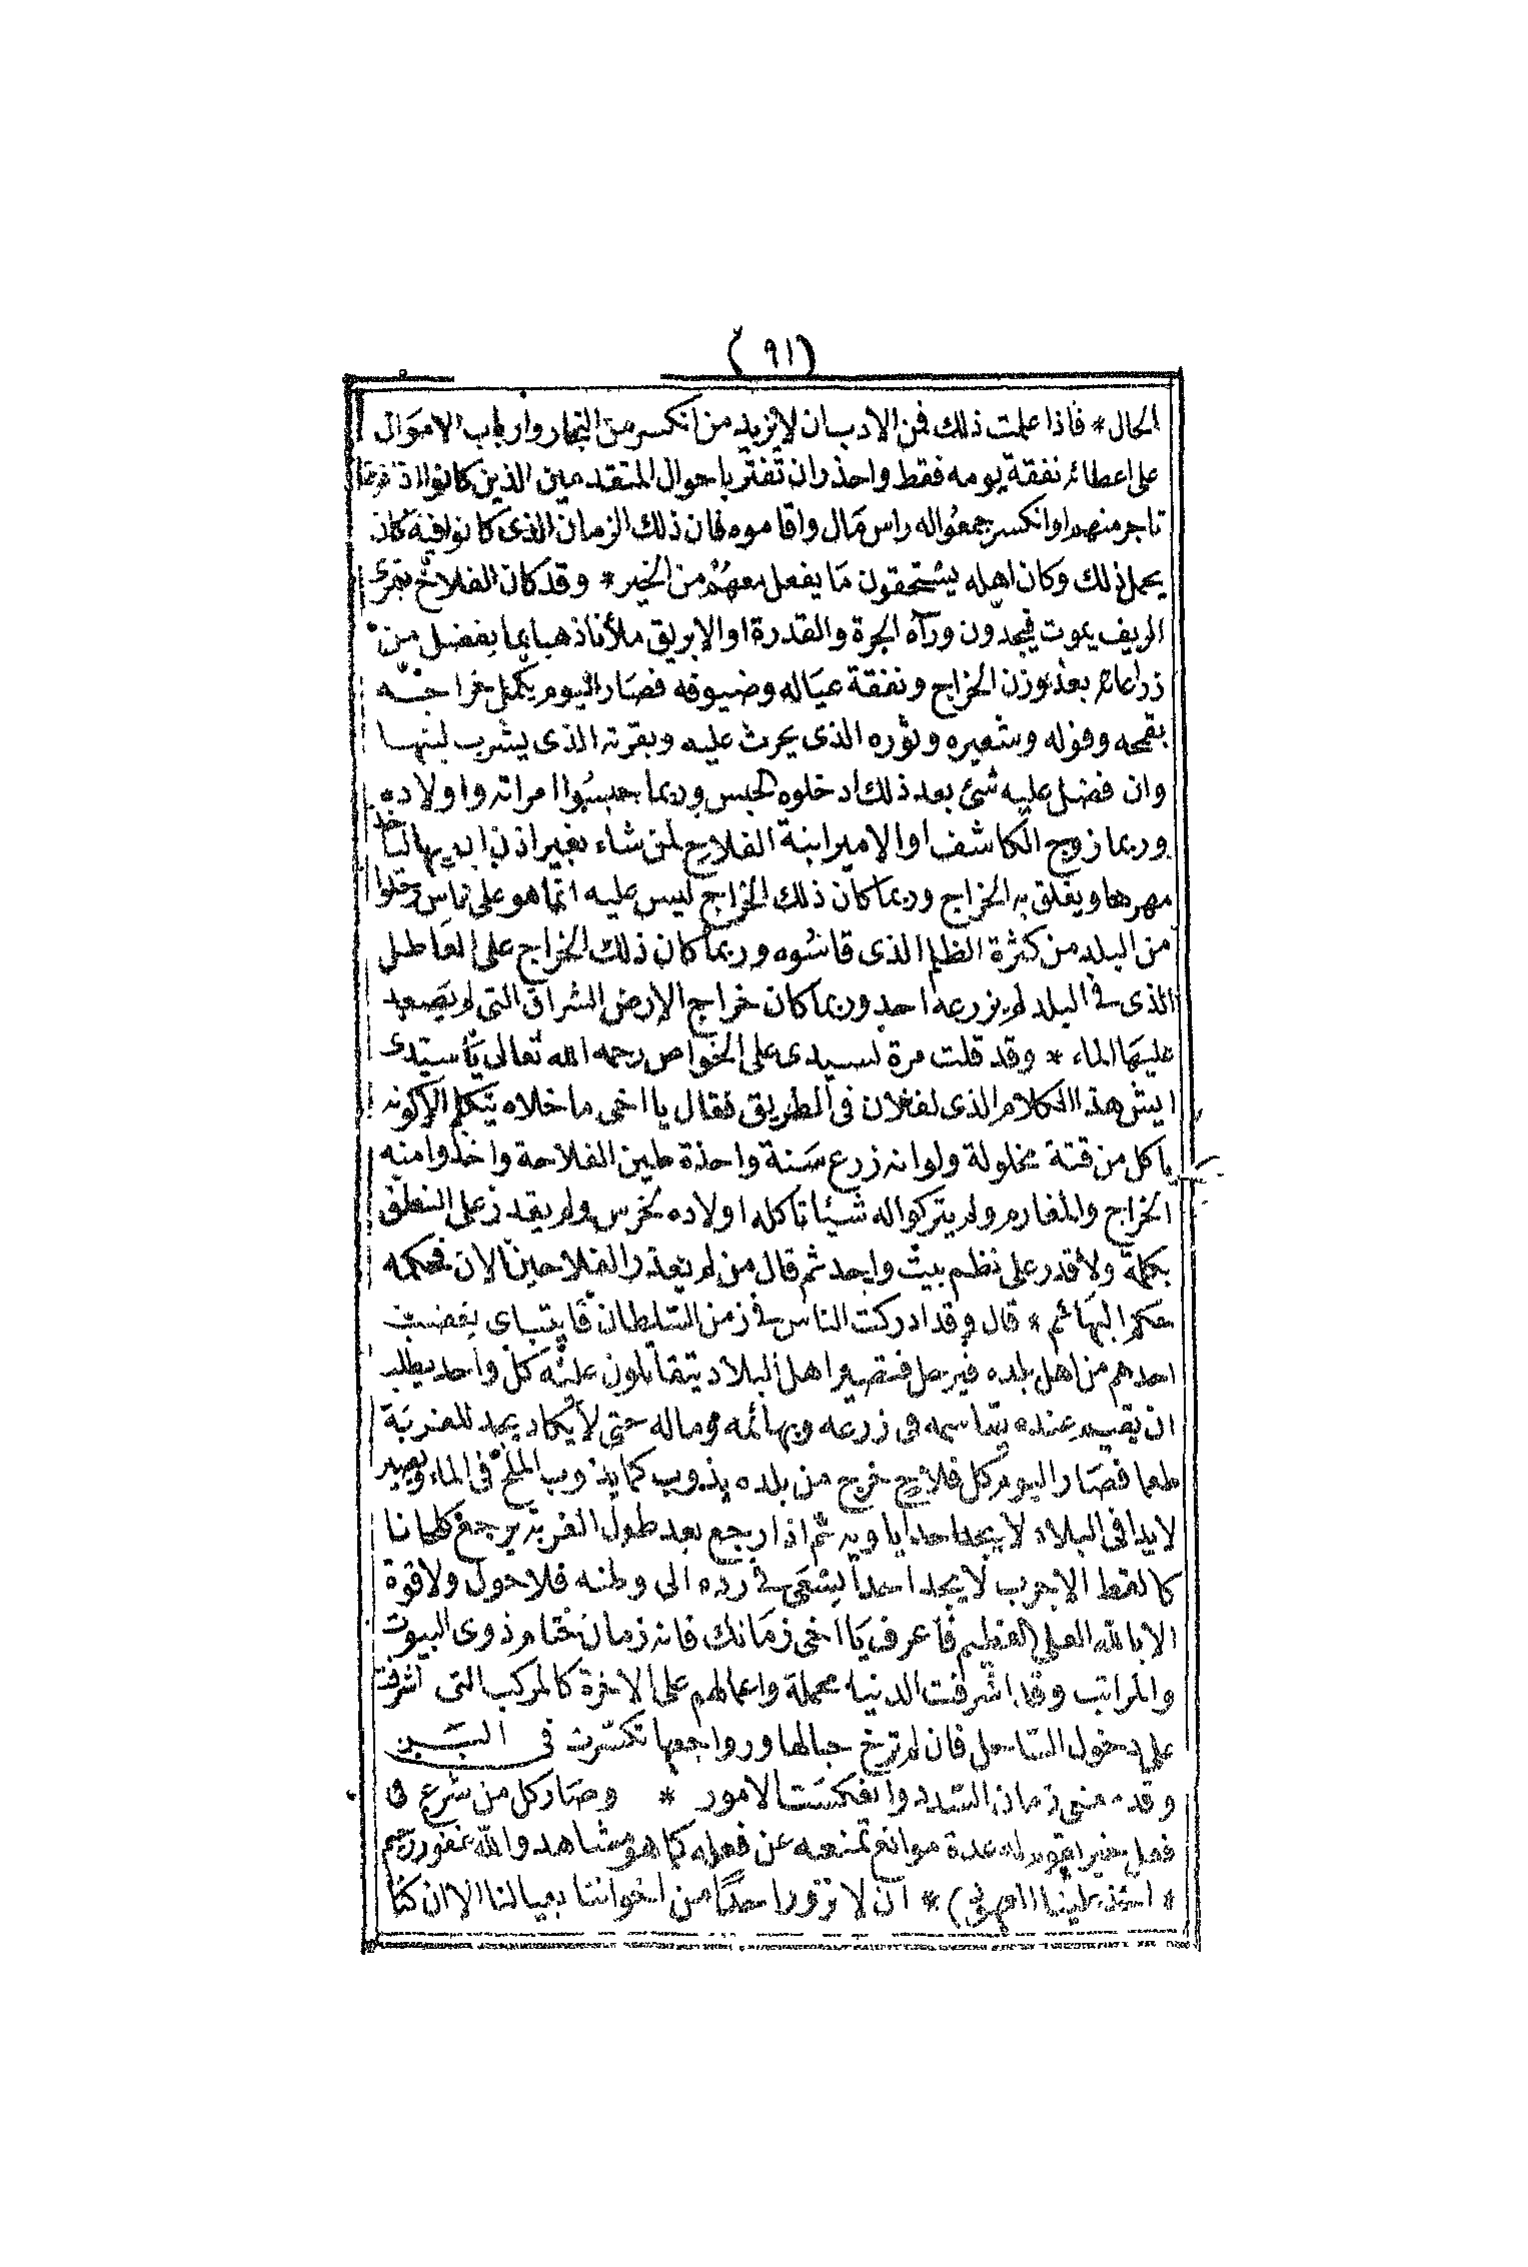 (٩١)
الحال * فاذا علمت ذلك فمن الادب ان لا نزيد من انكسر من التجار وارباب الاموال
على اعطائه نفقة يومه فقط واحذر ان تغتر باحوال المتقدمين الذين كانوا اذا
تاجر منهم او انكسر جمعوا له راس مال واقاموه فان ذلك الزمان الذى كانوا فيه كان
يحمل ذلك وكان اهله يستحقون ما يفعل معهم من الخير * وقد كان الفلاح
الريف يموت فيجدون ورآه الجرة والقدرة او الابريق ملأنا ذهبا مما يفضل من
زراعاتهم بعد وزن الخراج ونفقة عياله وضيوفه فصار اليوم يكمل خراجه
بقمحه وفوله وشعيره وثوره الذى يحرث عليه وبقرته الذى يشرب لبنها
وان فضل عليه شئ بعد ذلك ادخلوه الحبس وربما حبسوا امراته واولاده
وربما زوج الكاشف او الامير ابنة الفلاح لمن شاء بغير اذن ابيها
مهرها ويغلق به الخراج وربما كان ذلك الخراج ليس عليه انما هو على ناس رحلوا
من البلد من كثرة الظلم الذى قاسوه وربما كان ذلك الخراج على العاطل
الذى فى البلد لم يزرعه احد وربما كان خراج الارض الشراقى التى لم يصعد
عليها الماء * وقد قلت مرة لسيدى على الخواص رحمه الله تعالى يا سيدى
ايش هذا الكلام الذى لفلان فى الطريق فقال يا اخى ما خلاه يتكلم الا كونه
ياكل من قتة محلولة ولو انه زرع سنة واحدة طين الفلاحة واخذوا منه
الخراج والمغارم ولم يتركوا له شيئا تاكله اولاده لخرس ولم يقدر على النطق
بكلمة ولا قدر على نظم بيت واحد ثم قال من لم يعذر الفلاحين الان فحكمه
حكم البهائم * قال وقد ادركت الناس فى زمن السلطان قايتباى يغضب
احدهم من اهل بلده فيرحل فتصير اهل البلاد يتقاتلون عليه كل واحد يطلب
ان يقيم عنده يقاسمه فى زرعه وبهائمه وماله حتى لا يكاد يجد للغربة
طعما فصار اليوم كل فلاح خرج من بلده يذوب كما يذوب الملح فى الماء ويصير
لايدا فى البلاد لا يجد احدا ياويه ثم اذا رجع بعد طول الغربة يرجع
كالقط الاجرب لا يجد احدا يسعى فى رده الى وطنه فلا حول ولا قوة
الا بالله العلى العظيم فاعرف يا اخى زمانك فانه زمان ختام ذوى البيوت
والمراتب وقد اشرفت الدنيا محملة واعمالهم على الاخرة كالمركب التى اشرفت
على دخول الساحل فان لم ترخ حبالها ورواجعها تكسرت فى البر
وقد مضى زمان السدد وانعكست الامور * وصار كل من شرع فى
فعل خير تقوم له عدة موانع تمنعه عن فعله كما هو مشاهد والله غفور رحيم
* (اخذ علينا العهود) * ان لا نزور احدا من اخواننا بعيالنا الا ان كنا